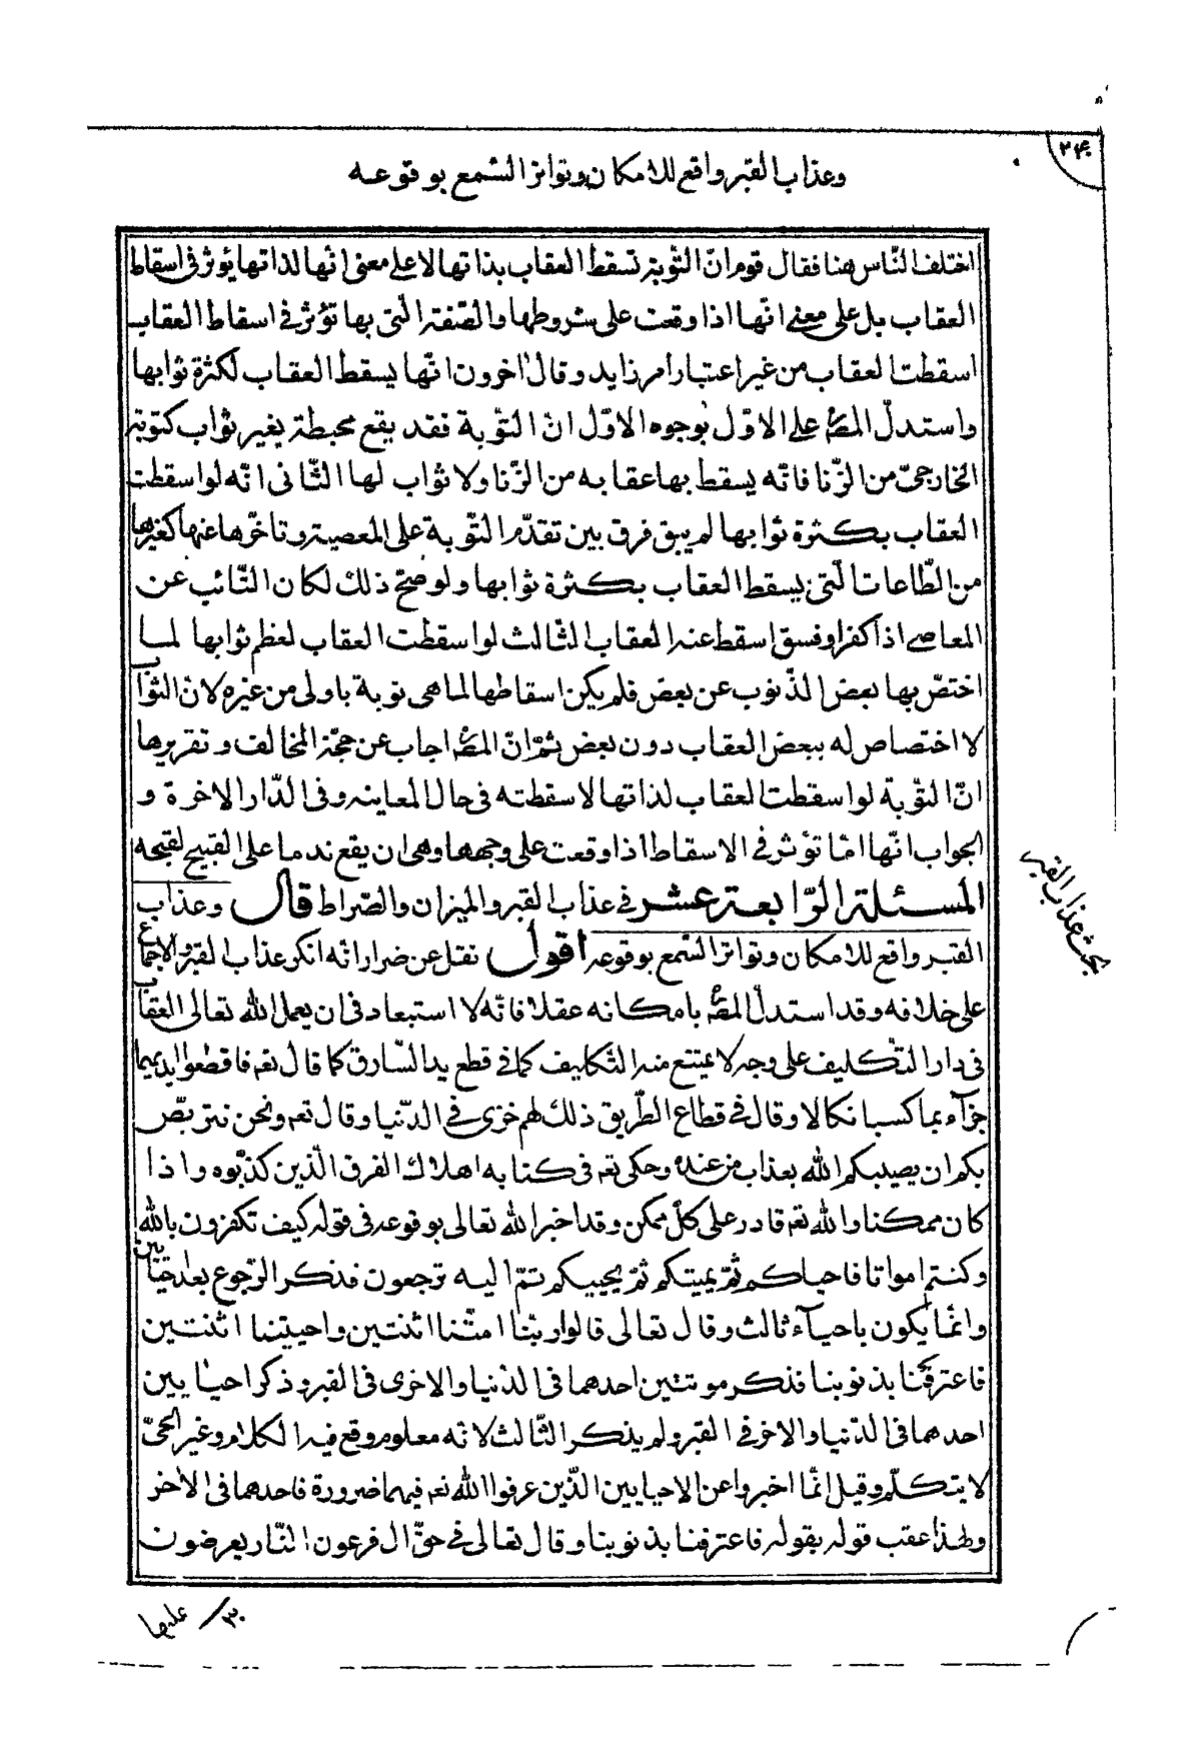 ۲۴۰
وعذاب القبر واقع للامكان وتواتر السّمع بوقوعه
اختلف النّاس هنا فقال قوم انّ التّوبة تسقط العقاب بذاتها لا على معنى انّها لذاتها يؤثر فى اسقاط
العقاب بل على معنى انّها اذا وقعت على شروطها والصّفة الّتى بها تؤثر فى اسقاط العقاب
اسقطت العقاب من غير اعتبار امر زايد وقال اخرون انّها يسقط العقاب لكثرة ثوابها
واستدلّ المصّ على الاوّل بوجوه الاوّل انّ التّوبة فقد يقع محبطة بغير ثواب كتوبة
الخارجىّ من الزّنا فانّه يسقط بها عقابه من الزّنا ولا ثواب لها الثّانى انّه لو اسقطت
العقاب بكثرة ثوابها لم يبق فرق بين تقدّم التّوبة على المعصية وتاخّرها عنها كغيرها
من الطّاعات الّتى يسقط العقاب بكثرة ثوابها ولو صحّ ذلك لكان التّائب عن
المعاصى اذا كفر او فسق اسقط عنه العقاب الثّالث لو اسقطت العقاب لعظم ثوابها لما
اختصّ بها بعض الذّنوب عن بعض فلم يكن اسقاطها لما هى توبة باولى من غيره لانّ الثّواب
لا اختصاص له ببعض العقاب دون بعض ثمّ انّ المصّ اجاب عن حجّة المخالف وتقريرها
انّ التّوبة لو اسقطت العقاب لذاتها لاسقطته فى حال المعاينة وفى الدّار الاخرة و
الجواب انّها انّما تؤثر فى الاسقاط اذا وقعت على وجهها وهى ان يقع ندما على القبيح لقبحه
المسئلة الرّابعة عشر فى عذاب القبر والميزان والصّراط قال وعذاب
القبر واقع للامكان وتواتر السّمع بوقوعه اقول نقل عن ضرار انّه انكر عذاب القبر والاجماع
على خلافه وقد استدلّ المصّ بامكانه عقلا فانّه لا استبعاد فى ان يعمل الله تعالى العقاب
فى دار التّكليف على وجه لا يمتنع منه التّكاليف كما فى قطع يد السّارق كما قال تعم فاقطعوا ايديهما
جزآء بما كسبا نكالا وقال فى قطاع الطّريق ذلك لهم خزى فى الدّنيا وقال تعم ونحن نتربّص
بكم ان يصيبكم الله بعذاب من عنده وحكى تعم فى كتابه اهلاك الفرق الّذين كذّبوه واذا
كان ممكنا والله تعم قادر على كلّ ممكن وقد اخبر الله تعالى بوقوعه فى قوله كيف تكفرون بالله
وكنتم امواتا فاحياكم ثمّ يميتكم ثمّ يحييكم ثمّ اليه ترجعون فذكر الرّجوع بعد احيائين
وانّما يكون باحيآء ثالث وقال تعالى قالوا ربّنا امتّنا اثنتين واحييتنا اثنتين
فاعترفنا بذنوبنا فذكر موتتين احدهما فى الدّنيا والاخرى فى القبر وذكر احيايين
احدهما فى الدّنيا والاخر فى القبر ولم يذكر الثّالث لانّه معلوم وقع فيه الكلام وغير الحىّ
لا يتكلّم وقيل انّما اخبروا عن الاحيايين الّذين عرفوا الله تعم فيهما ضرورة فاحدهما فى الاخر
ولهذا عقب قوله بقوله فاعترفنا بذنوبنا وقال تعالى فى حقّ ال فرعون النّار يعرضون
بحث عذاب القبر
۳۰ / عليها